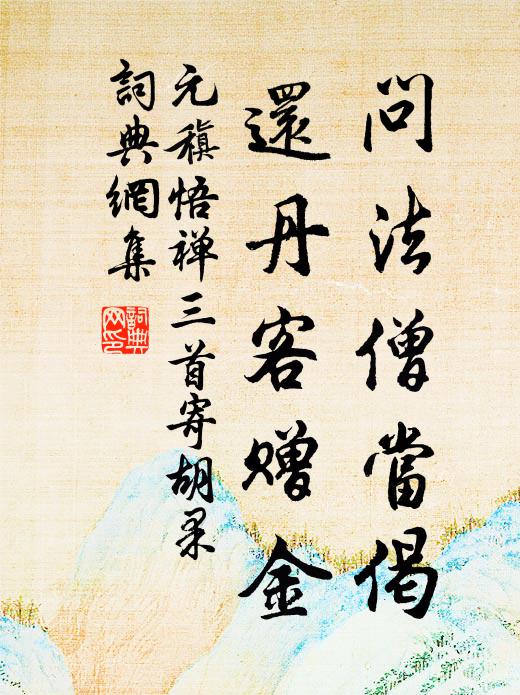 問法僧當偈
還丹客贈金
元稹悟禅三首寄胡杲
詞典網集
詞典网印